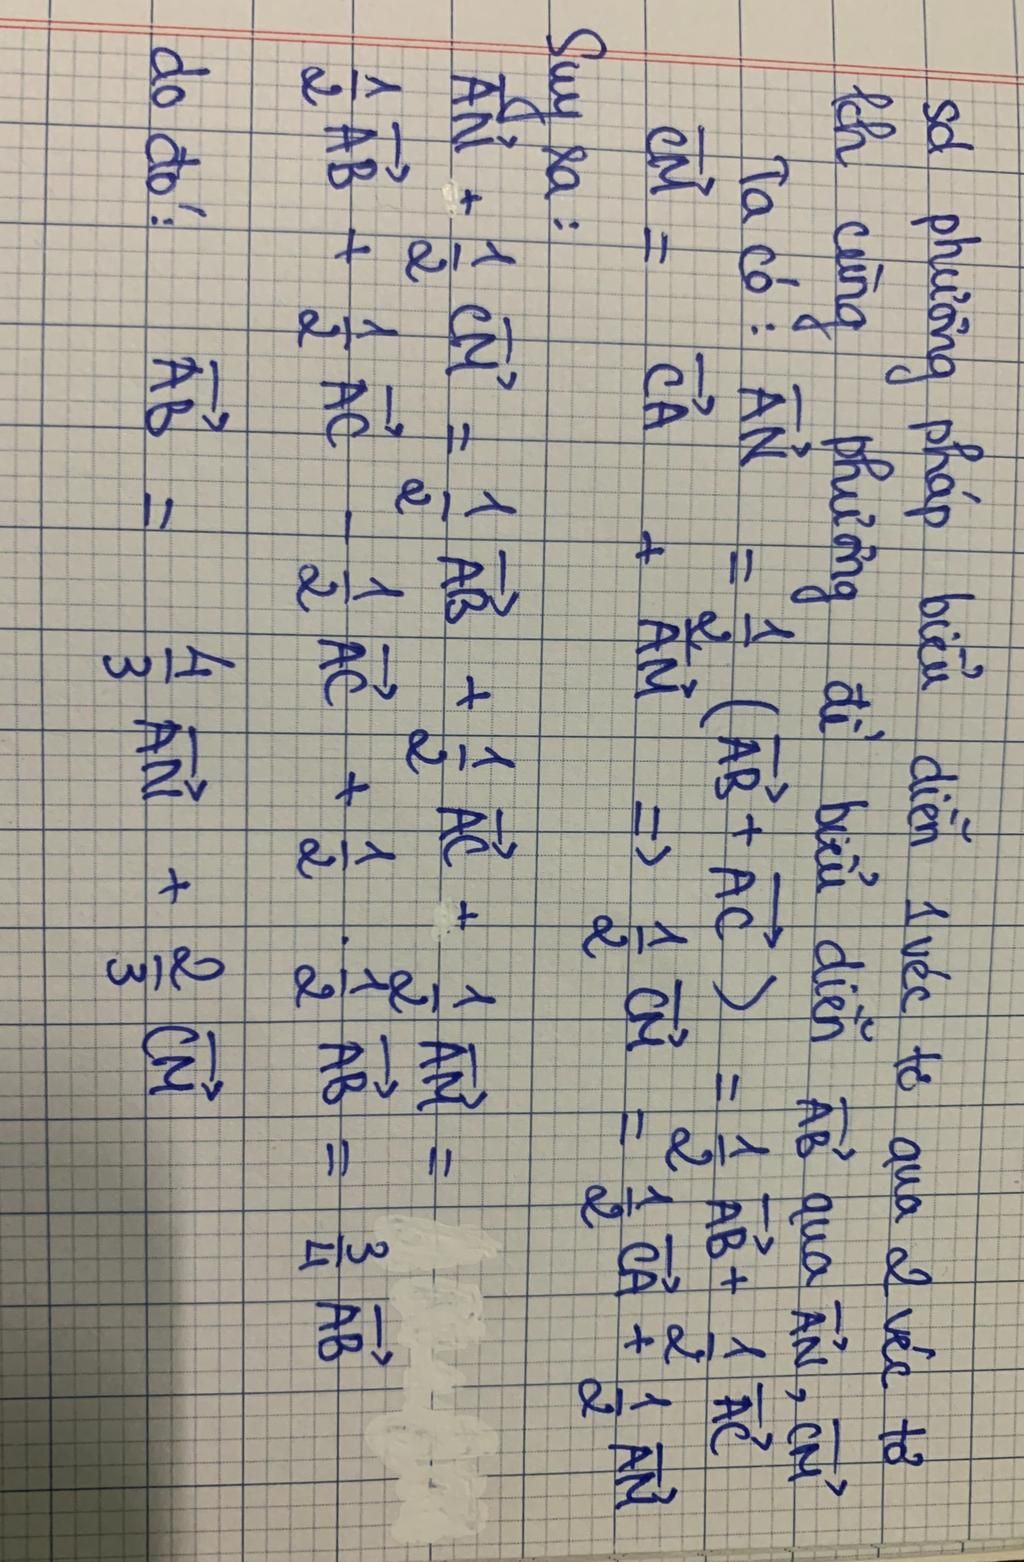 sd phương pháp biểu diễn 1 véc tơ qua 2 véc tơ
kh cùng phương để biểu diễn \overrightarrow{AB} qua \overrightarrow{AN}, \overrightarrow{CM}
Ta có: \overrightarrow{AN} = \frac{1}{2} (\overrightarrow{AB} + \overrightarrow{AC}) = \frac{1}{2} \overrightarrow{AB} + \frac{1}{2} \overrightarrow{AC}
\overrightarrow{CM} = \overrightarrow{CA} + \overrightarrow{AM} => \frac{1}{2} \overrightarrow{CM} = \frac{1}{2} \overrightarrow{CA} + \frac{1}{2} \overrightarrow{AM}
Suy ra:
\overrightarrow{AN} + \frac{1}{2} \overrightarrow{CM} = \frac{1}{2} \overrightarrow{AB} + \frac{1}{2} \overrightarrow{AC} + \frac{1}{2} \overrightarrow{AM} =
\frac{1}{2} \overrightarrow{AB} + \frac{1}{2} \overrightarrow{AC} - \frac{1}{2} \overrightarrow{AC} + \frac{1}{2} . \frac{1}{2} \overrightarrow{AB} = \frac{3}{4} \overrightarrow{AB}
do đó: \overrightarrow{AB} = \frac{4}{3} \overrightarrow{AN} + \frac{2}{3} \overrightarrow{CM}